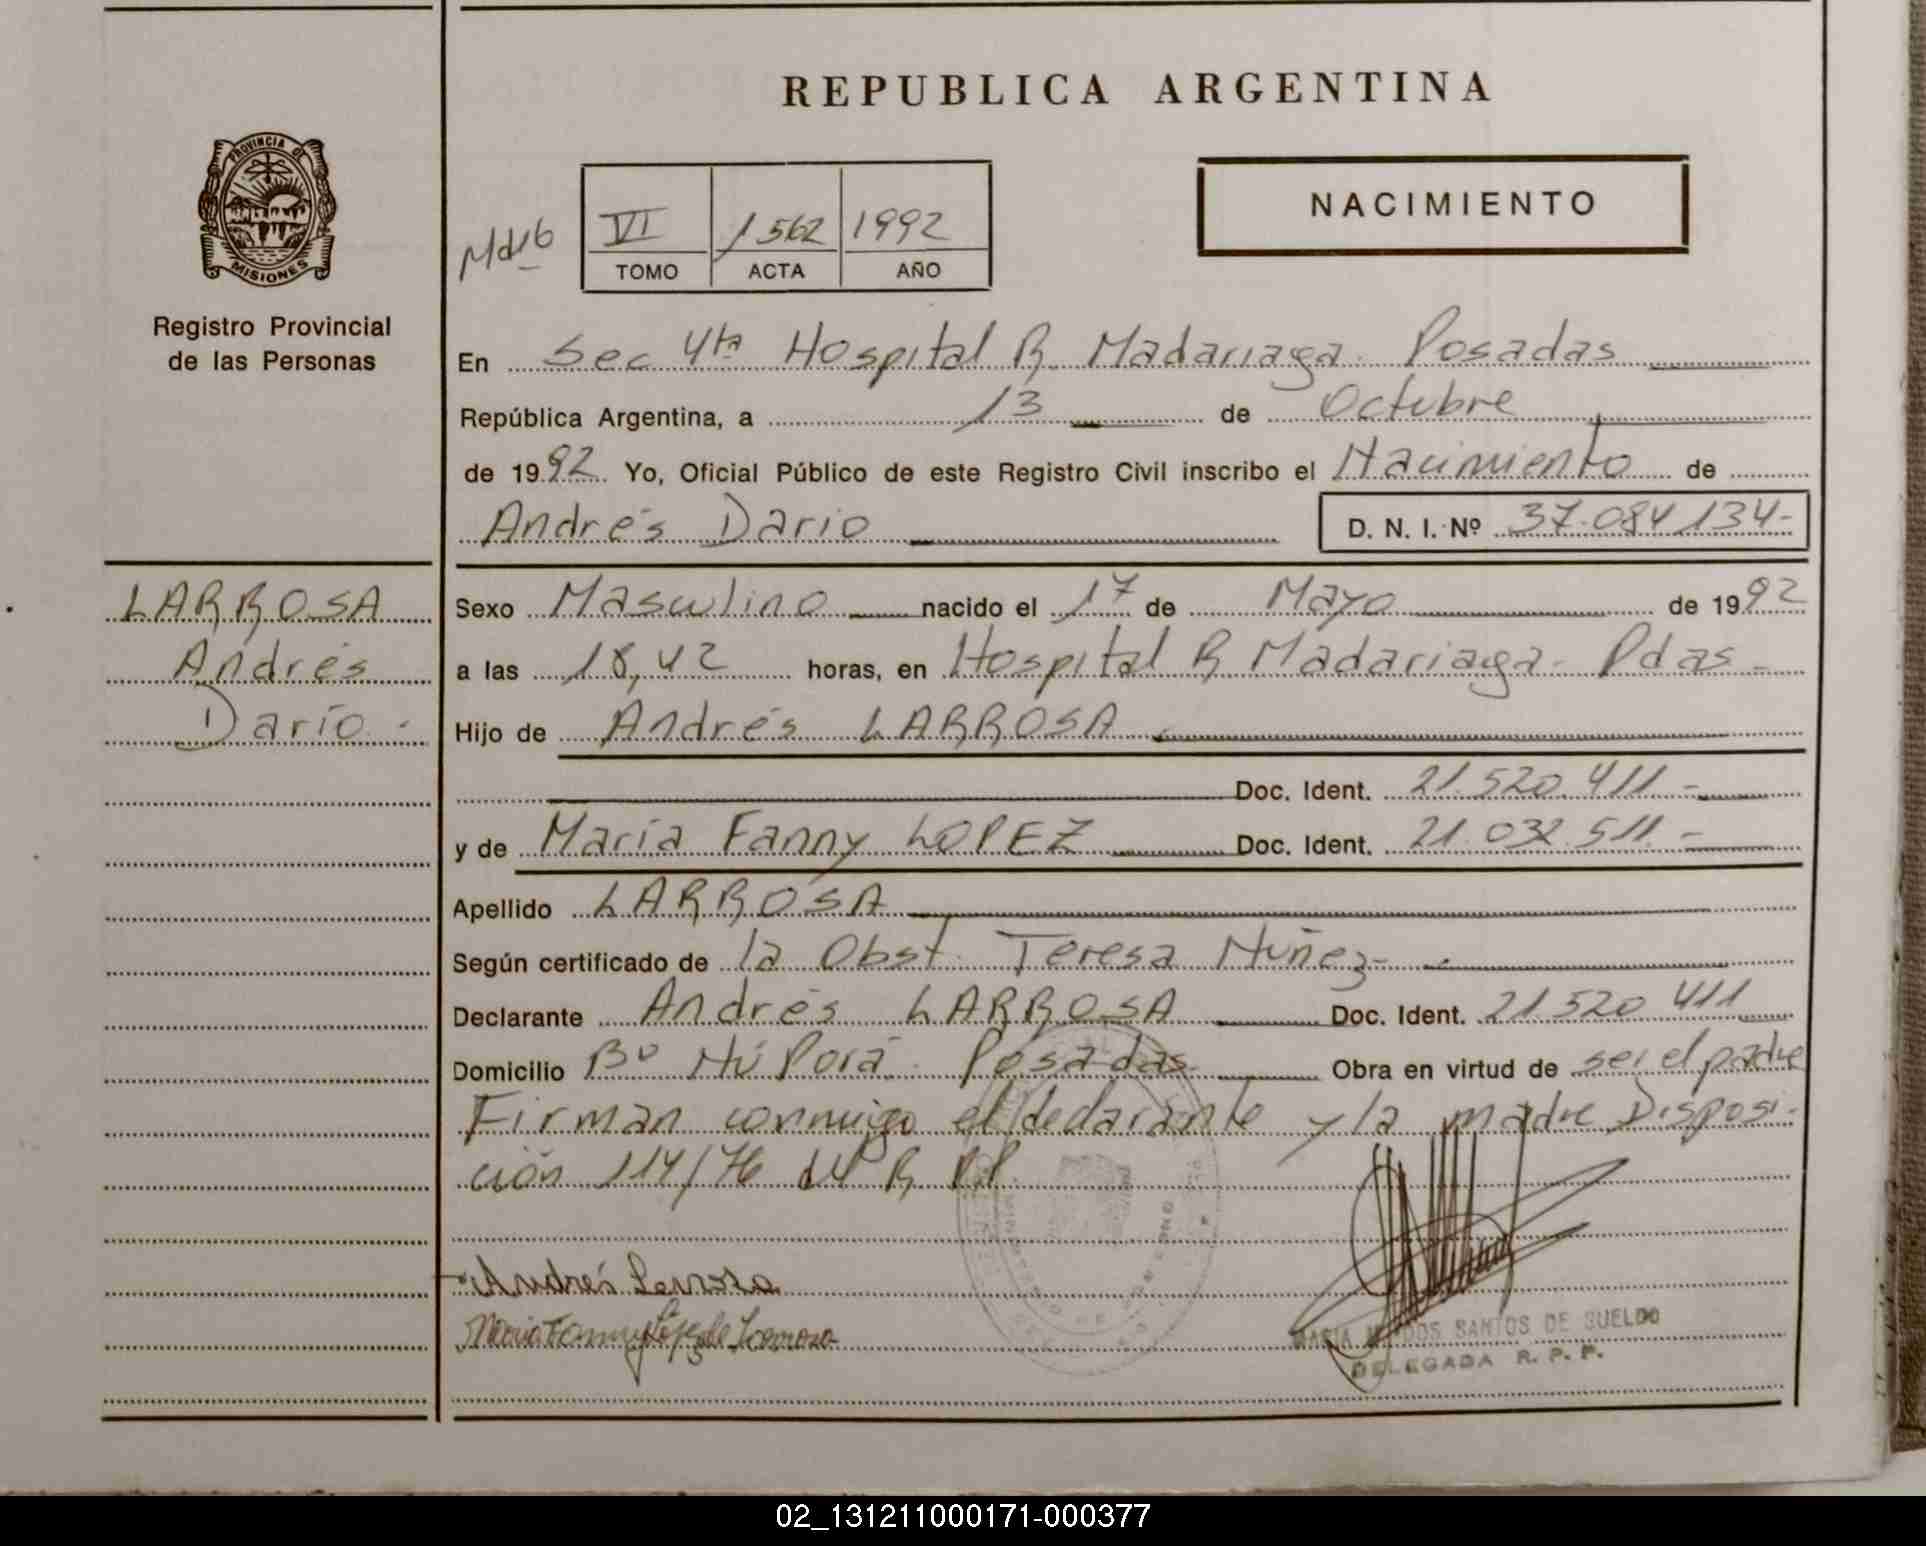 REPUBLICA ARGENTINA
PROVINCIA DE
MISIONES
Registro Provincial
de las Personas
VI 1562 1992
TOMO ACTA AÑO
NACIMIENTO
En Sec 4ta Hospital R. Madariaga. Posadas
República Argentina, a 13 de Octubre
de 1992 Yo, Oficial Público de este Registro Civil inscribo el Nacimiento de
Andrés Dario D. N. I. Nº 37.084134-
LARROSA
Andrés
Darío.
Sexo Masculino nacido el 17 de Mayo de 1992
a las 18,42 horas, en Hospital R. Madariaga. Pdas-
Hijo de Andrés LARROSA
Doc. Ident. 21.520.411.-
y de María Fanny LOPEZ Doc. Ident. 21.032.511.-
Apellido LARROSA
Según certificado de la Obst. Teresa Nuñez-
Declarante Andrés LARROSA Doc. Ident. 21520411
Domicilio Bº Ñú Porá. Posadas Obra en virtud de ser el padre
Firman conmigo el declarante y la madre Disposi-
ción 114/76 del R.P.P.
Andrés Larrosa
Maria Fanny López de Larrosa
SANTOS DE SUELDO
DELEGADA R. P. P.
02_131211000171-000377